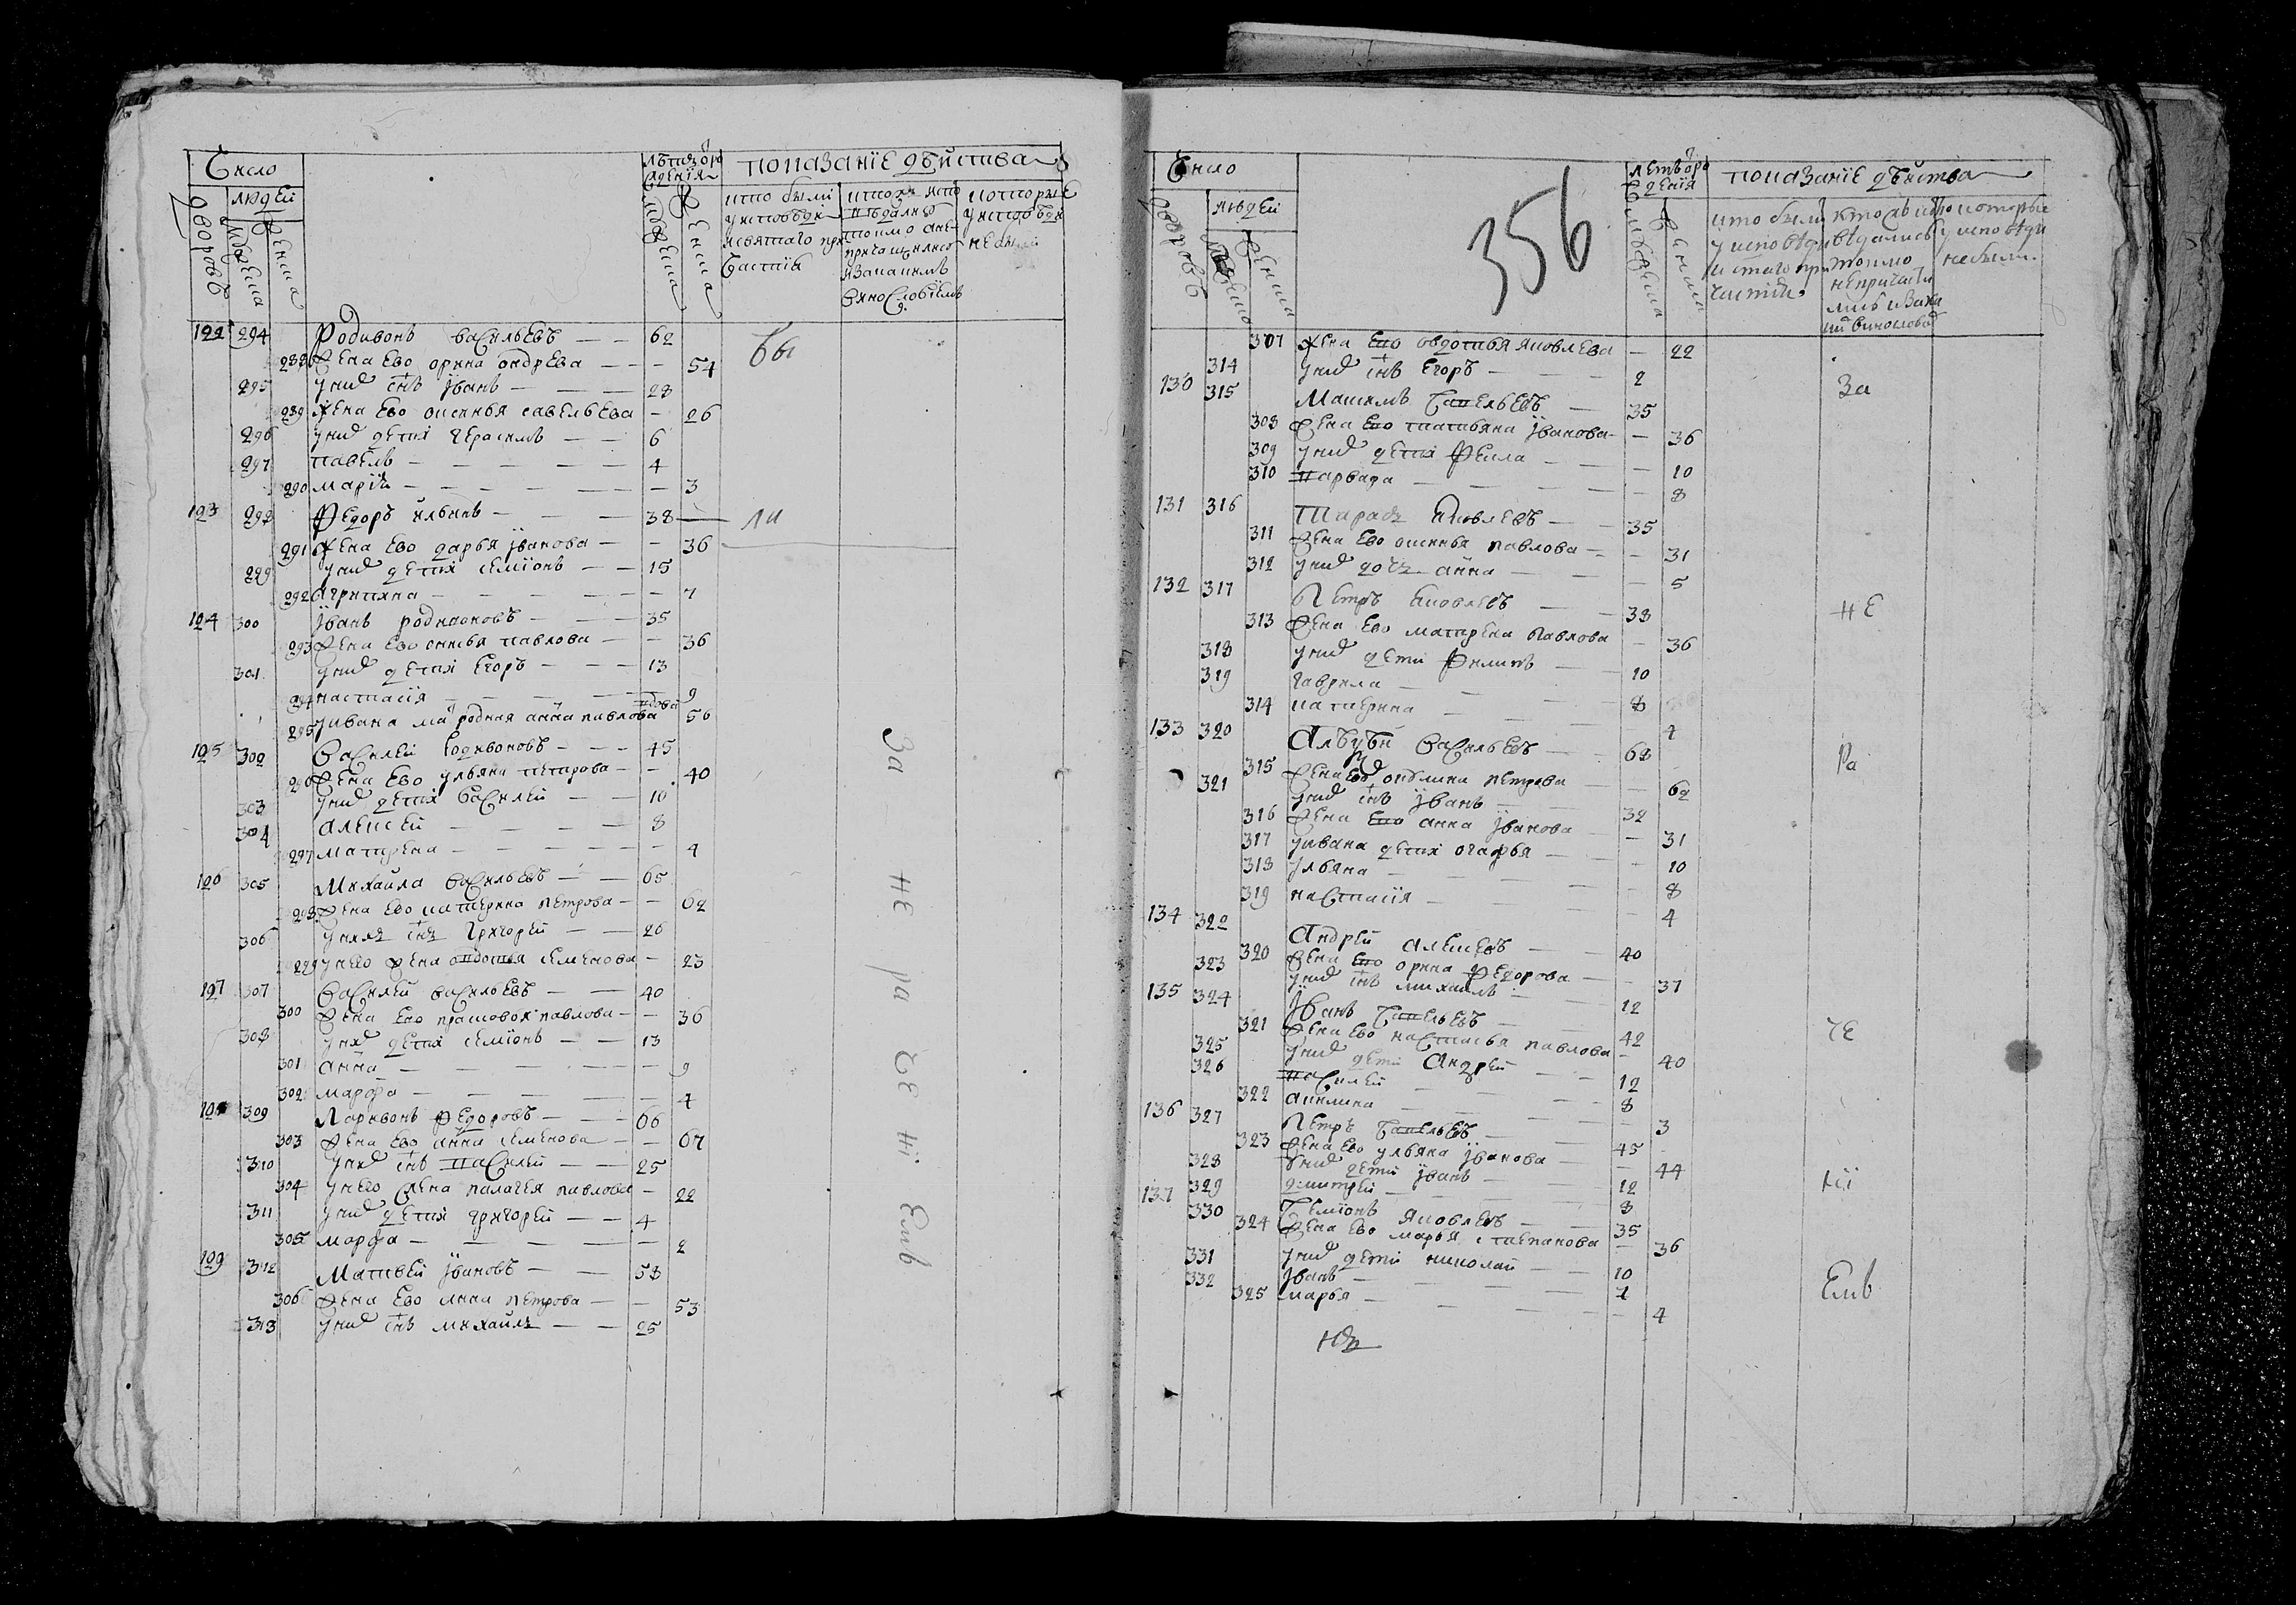 Число
лѣта ѿ ро
жденїя
показанїе дѣйства
дворовъ
людей
мужеска
женска
мужеска
женска
кто были
у исповѣди
и святаго при
частїя
исповѣдалис
токмо а не
причащалис
и за каким
винословїем
которые
у исповѣди
не были
122 294 Родивонъ васильевъ 62 бы
288 жена ево орина ондрева 54
295 у них снъ Їванъ 28
289 жена ево оксинья савельева 26
296 у них дети герасимъ 6
297 павелъ 4
290 марїя 3
123 298 Федоръ илвинъ 38 ли
291 жена ево дарья Їванова 36
299 у них дети семїонъ 15
292 агрипяна 7
124 300 Їванъ родионовъ 35
293 жена ево оксинья павлова 36
301 у них дети Егоръ 13
294 настасїя 9
295 у ивана мат родная анна павлова вдова 56
125 302 василей Родивоновъ 45
296 жена ево ульяна петрова 40
303 у них дети василей 10
304 алексей 8
297 матрена 4
126 305 Михайла васильевъ 65
298 жена ево катерина петрова 62
306 у них снъ Григорей 26
299 у нево жена овдотья семенова 23
127 307 василей васильевъ 40
300 жена ево прасковья павлова 36
308 у них дети семїонъ 13
301 анна 9
302 марфа 4
128 309 Ларивонъ федоровъ 66
303 жена ево анна семенова 67
310 у них снъ василей 25
304 у нево жена палагея павлова 22
311 у них дети григорей 4
305 марфа 2
129 312 Матвей Ївановъ 58
306 жена ево анна петрова 53
313 у них снъ михайла 25
За не ра че нї емъ
356
Число
летъ ѿ ро
ждения
показанїе дѣйства
дворовъ
людей
мужеска
женска
мужеска
женска
кто были
у исповѣди
и стаго при
частия
исповѣдались
токмо
не причаща
лись и за каки
м винословие
которые
у исповѣди
не были
307 жена ево овдотья яковлева 22
314 у них снъ Егоръ 2
130 315 Максимъ савельевъ 35 За
308 жена ево татьяна Їванова 36
309 у них дети Фекла 10
310 варвара 8
131 316 Тарас яковлевъ 35
311 жена ево оксинья павлова 31
312 у них дочь анна 5
132 317 Петръ яковлевъ 38 не
313 жена ево матрена павлова 36
318 у них дети филипъ 10
319 гаврила 8
314 катерина 4
133 320 васильевъ 68 ра
315 жена ево акулина петрова 62
321 у них снъ Їванъ 32
316 жена ево анна Їванова 31
317 у ивана дети огафья 10
318 ульяна 8
319 настасїя 4
134 322 Андрей алексевъ 40
320 жена ево орина федорова 37
323 у них снъ михаилъ 12
135 324 Їванъ савельевъ 42 че
321 жена ево настасья павлова 40
325 у них дети Андрей 12
326 василей 8
322 акилина 3
136 327 Петръ савельевъ 45
323 жена ево ульяна Їванова 44
328 у них дети Їванъ 12 нїи
329 дмитрей 8
137 330 семїонъ яковлевъ 35
324 жена ево марья степанова 36
331 у них дети николай 10
332 Їванъ 7 емъ
325 марья 4